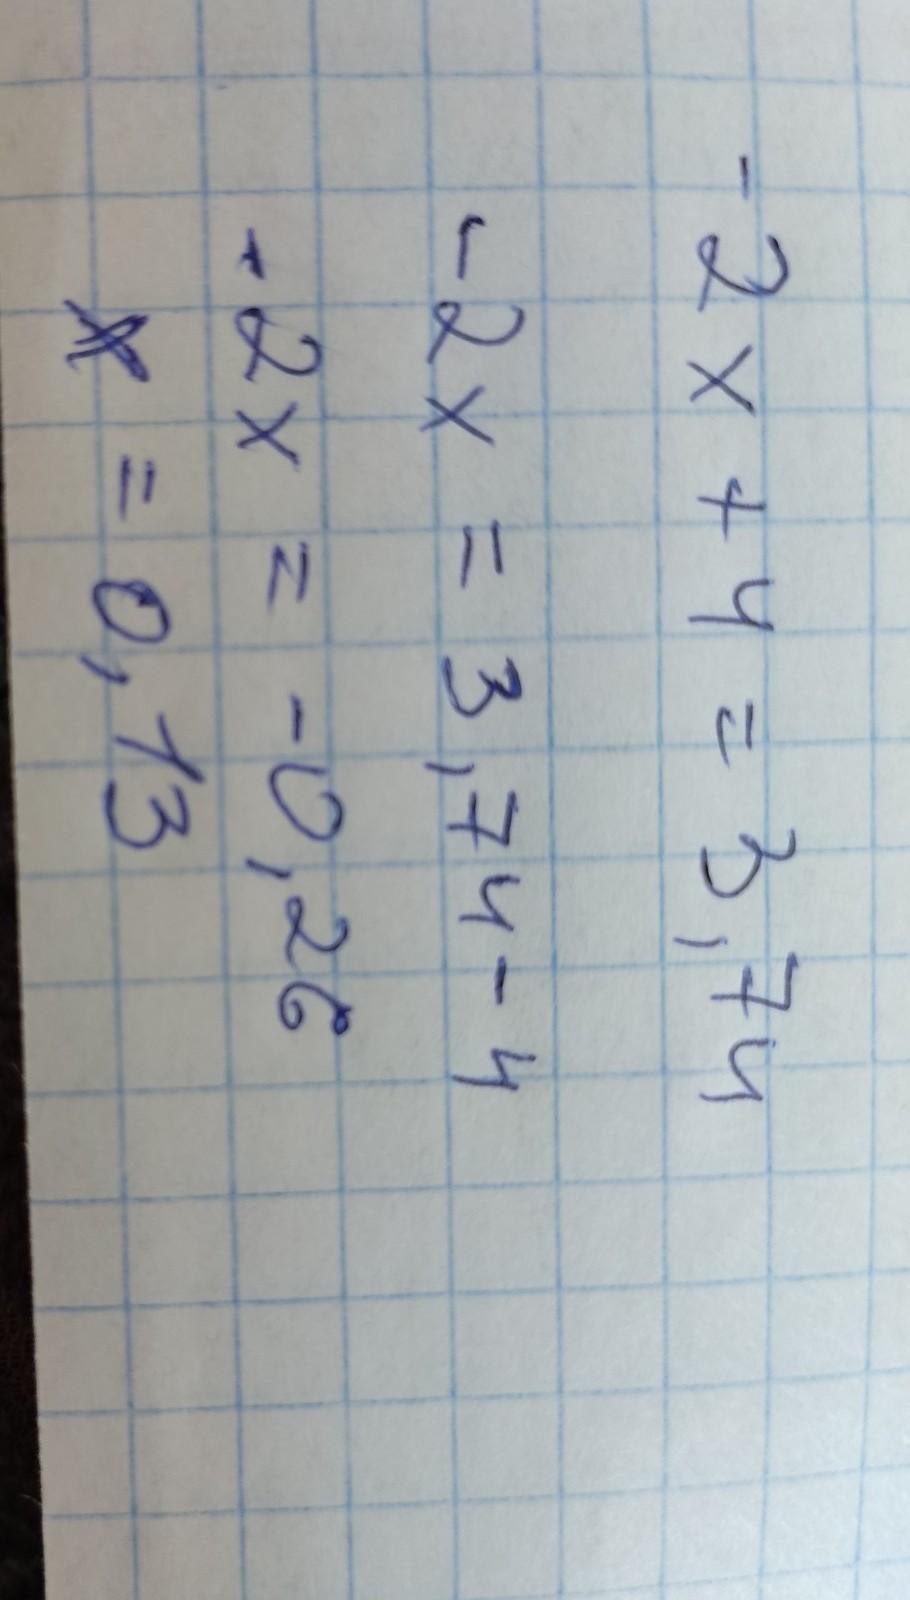 -2x+4=3,74
-2x=3,74-4
-2x=-0,26
x=0,13